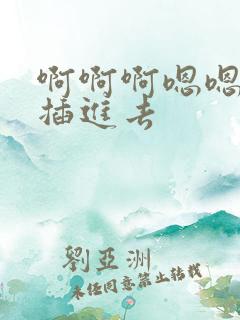 啊啊啊嗯嗯
插進去
劉亞洲
未经同意禁止转载